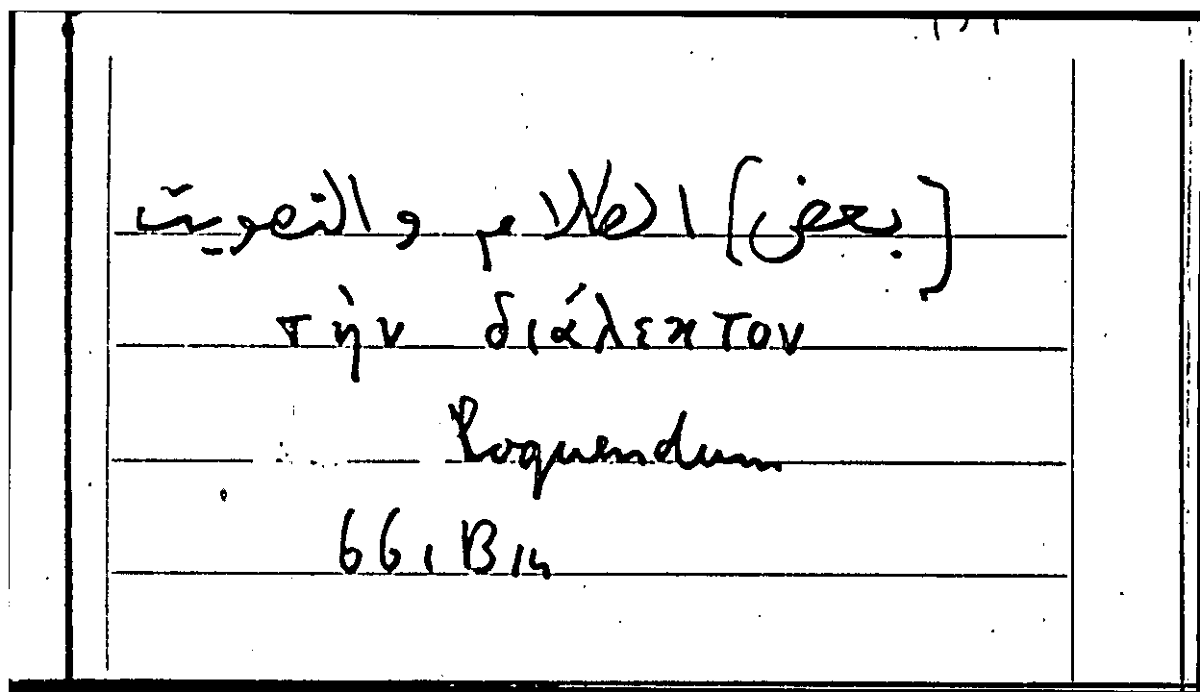 [بعض] الكلام والتصويت
τὴν διάλεκτον
loquendum
661 B 14